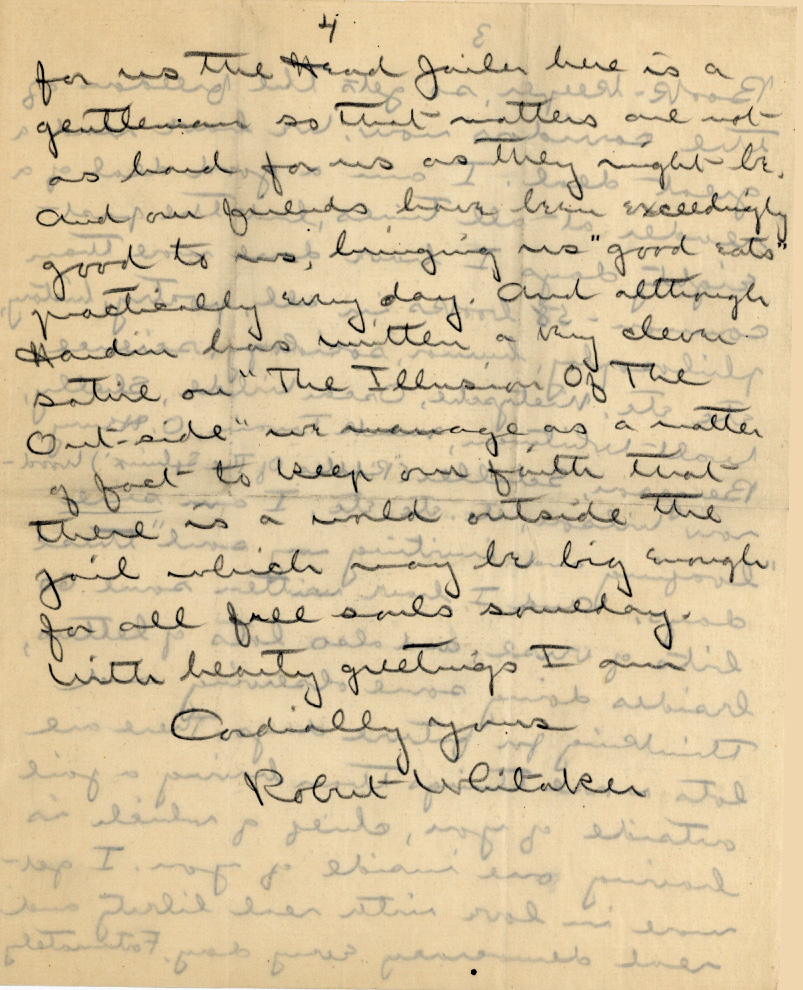 4
for us the Head Jailer here is a
gentleman so that matters are not
as hard for us as they might be.
And our friends have been exceedingly
good to us, bringing us "good eats"
practically every day. And although
Hardin has written a very clever
satire on "The Illusion Of The
Out-side" we manage as a matter
of fact to keep our faith that
there is a world outside the
jail which may be big enough
for all free souls someday.
With hearty greetings I am
Cordially yours
Robert Whitaker